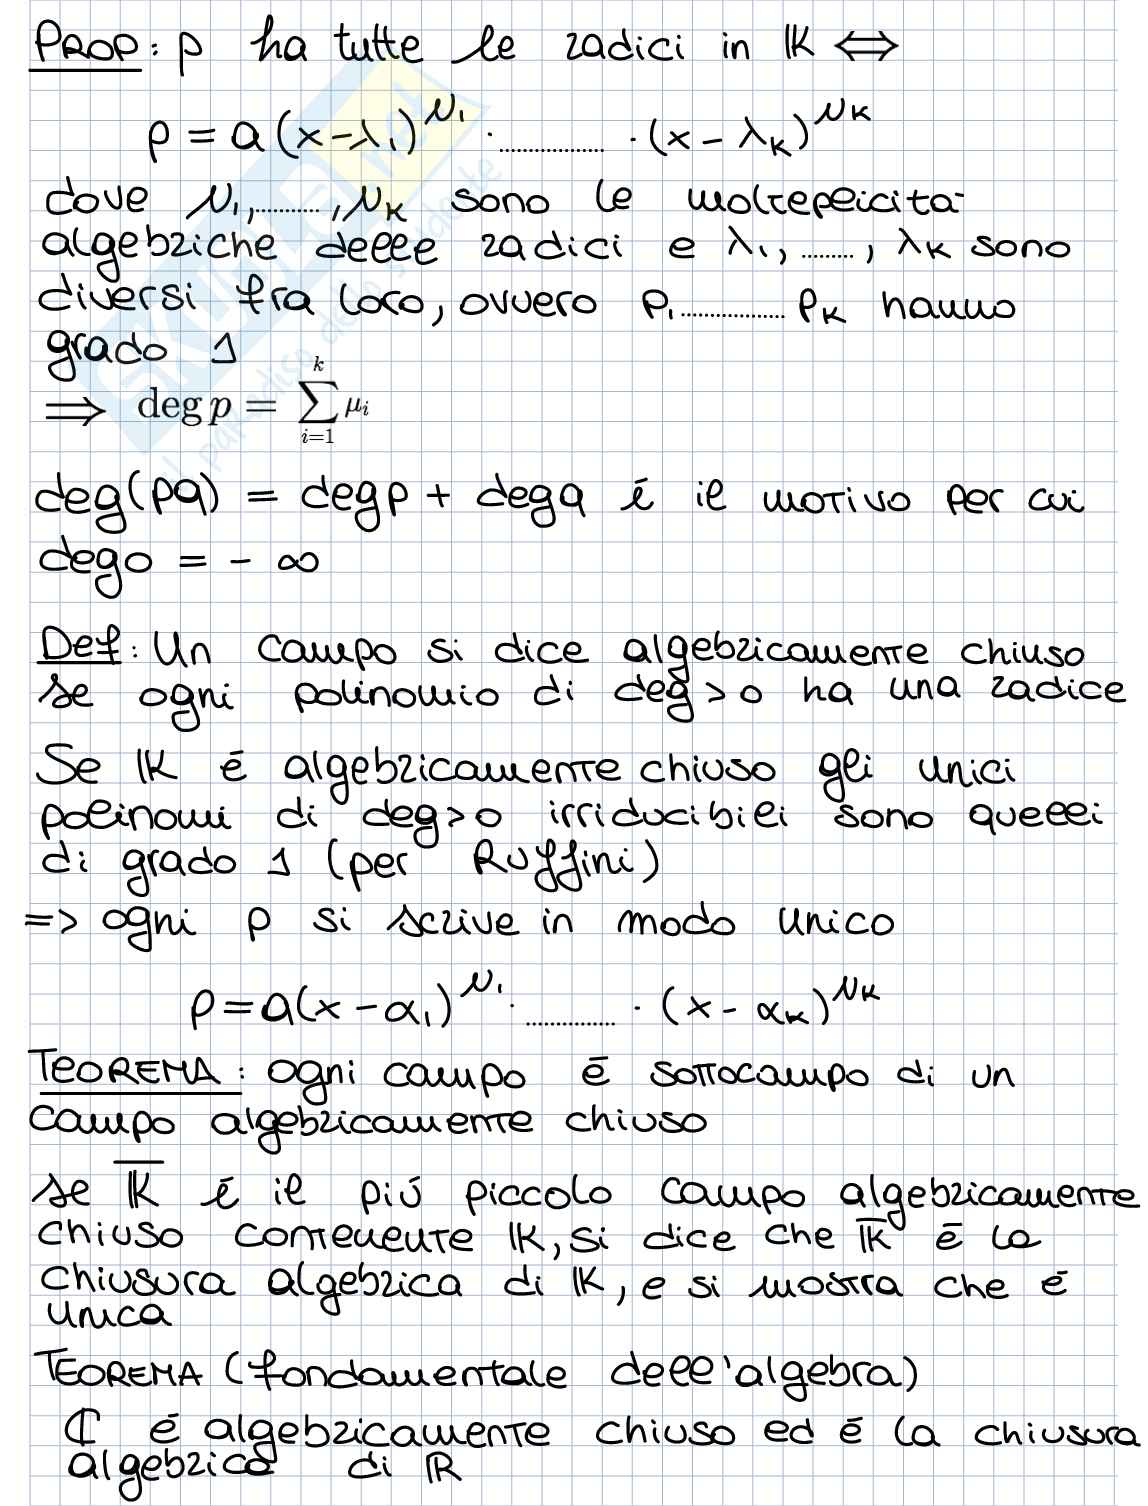 PROP: p ha tutte le radici in 𝕂 ⟺
p = a(x-λ₁)^μ₁ · ........ · (x-λₖ)^μₖ
dove μ₁,........,μₖ sono le molteplicità
algebriche delle radici e λ₁, ........, λₖ sono
diversi fra loro, ovvero p₁ ........ pₖ hanno
grado 1
⟹ deg p = ∑_{i=1}^{k} μᵢ
deg(pq) = deg p + deg q è il motivo per cui
deg 0 = - ∞
Def: Un campo si dice algebricamente chiuso
se ogni polinomio di deg > 0 ha una radice
Se 𝕂 è algebricamente chiuso gli unici
polinomi di deg > 0 irriducibili sono quelli
di grado 1 (per Ruffini)
=> ogni p si scrive in modo unico
p = a(x-α₁)^μ₁ · ........ · (x-αₖ)^μₖ
TEOREMA: ogni campo è sottocampo di un
campo algebricamente chiuso
se 𝕂̅ è il più piccolo campo algebricamente
chiuso contenente 𝕂, si dice che 𝕂̅ è la
chiusura algebrica di 𝕂, e si mostra che è
unica
TEOREMA (fondamentale dell'algebra)
ℂ è algebricamente chiuso ed è la chiusura
algebrica di ℝ